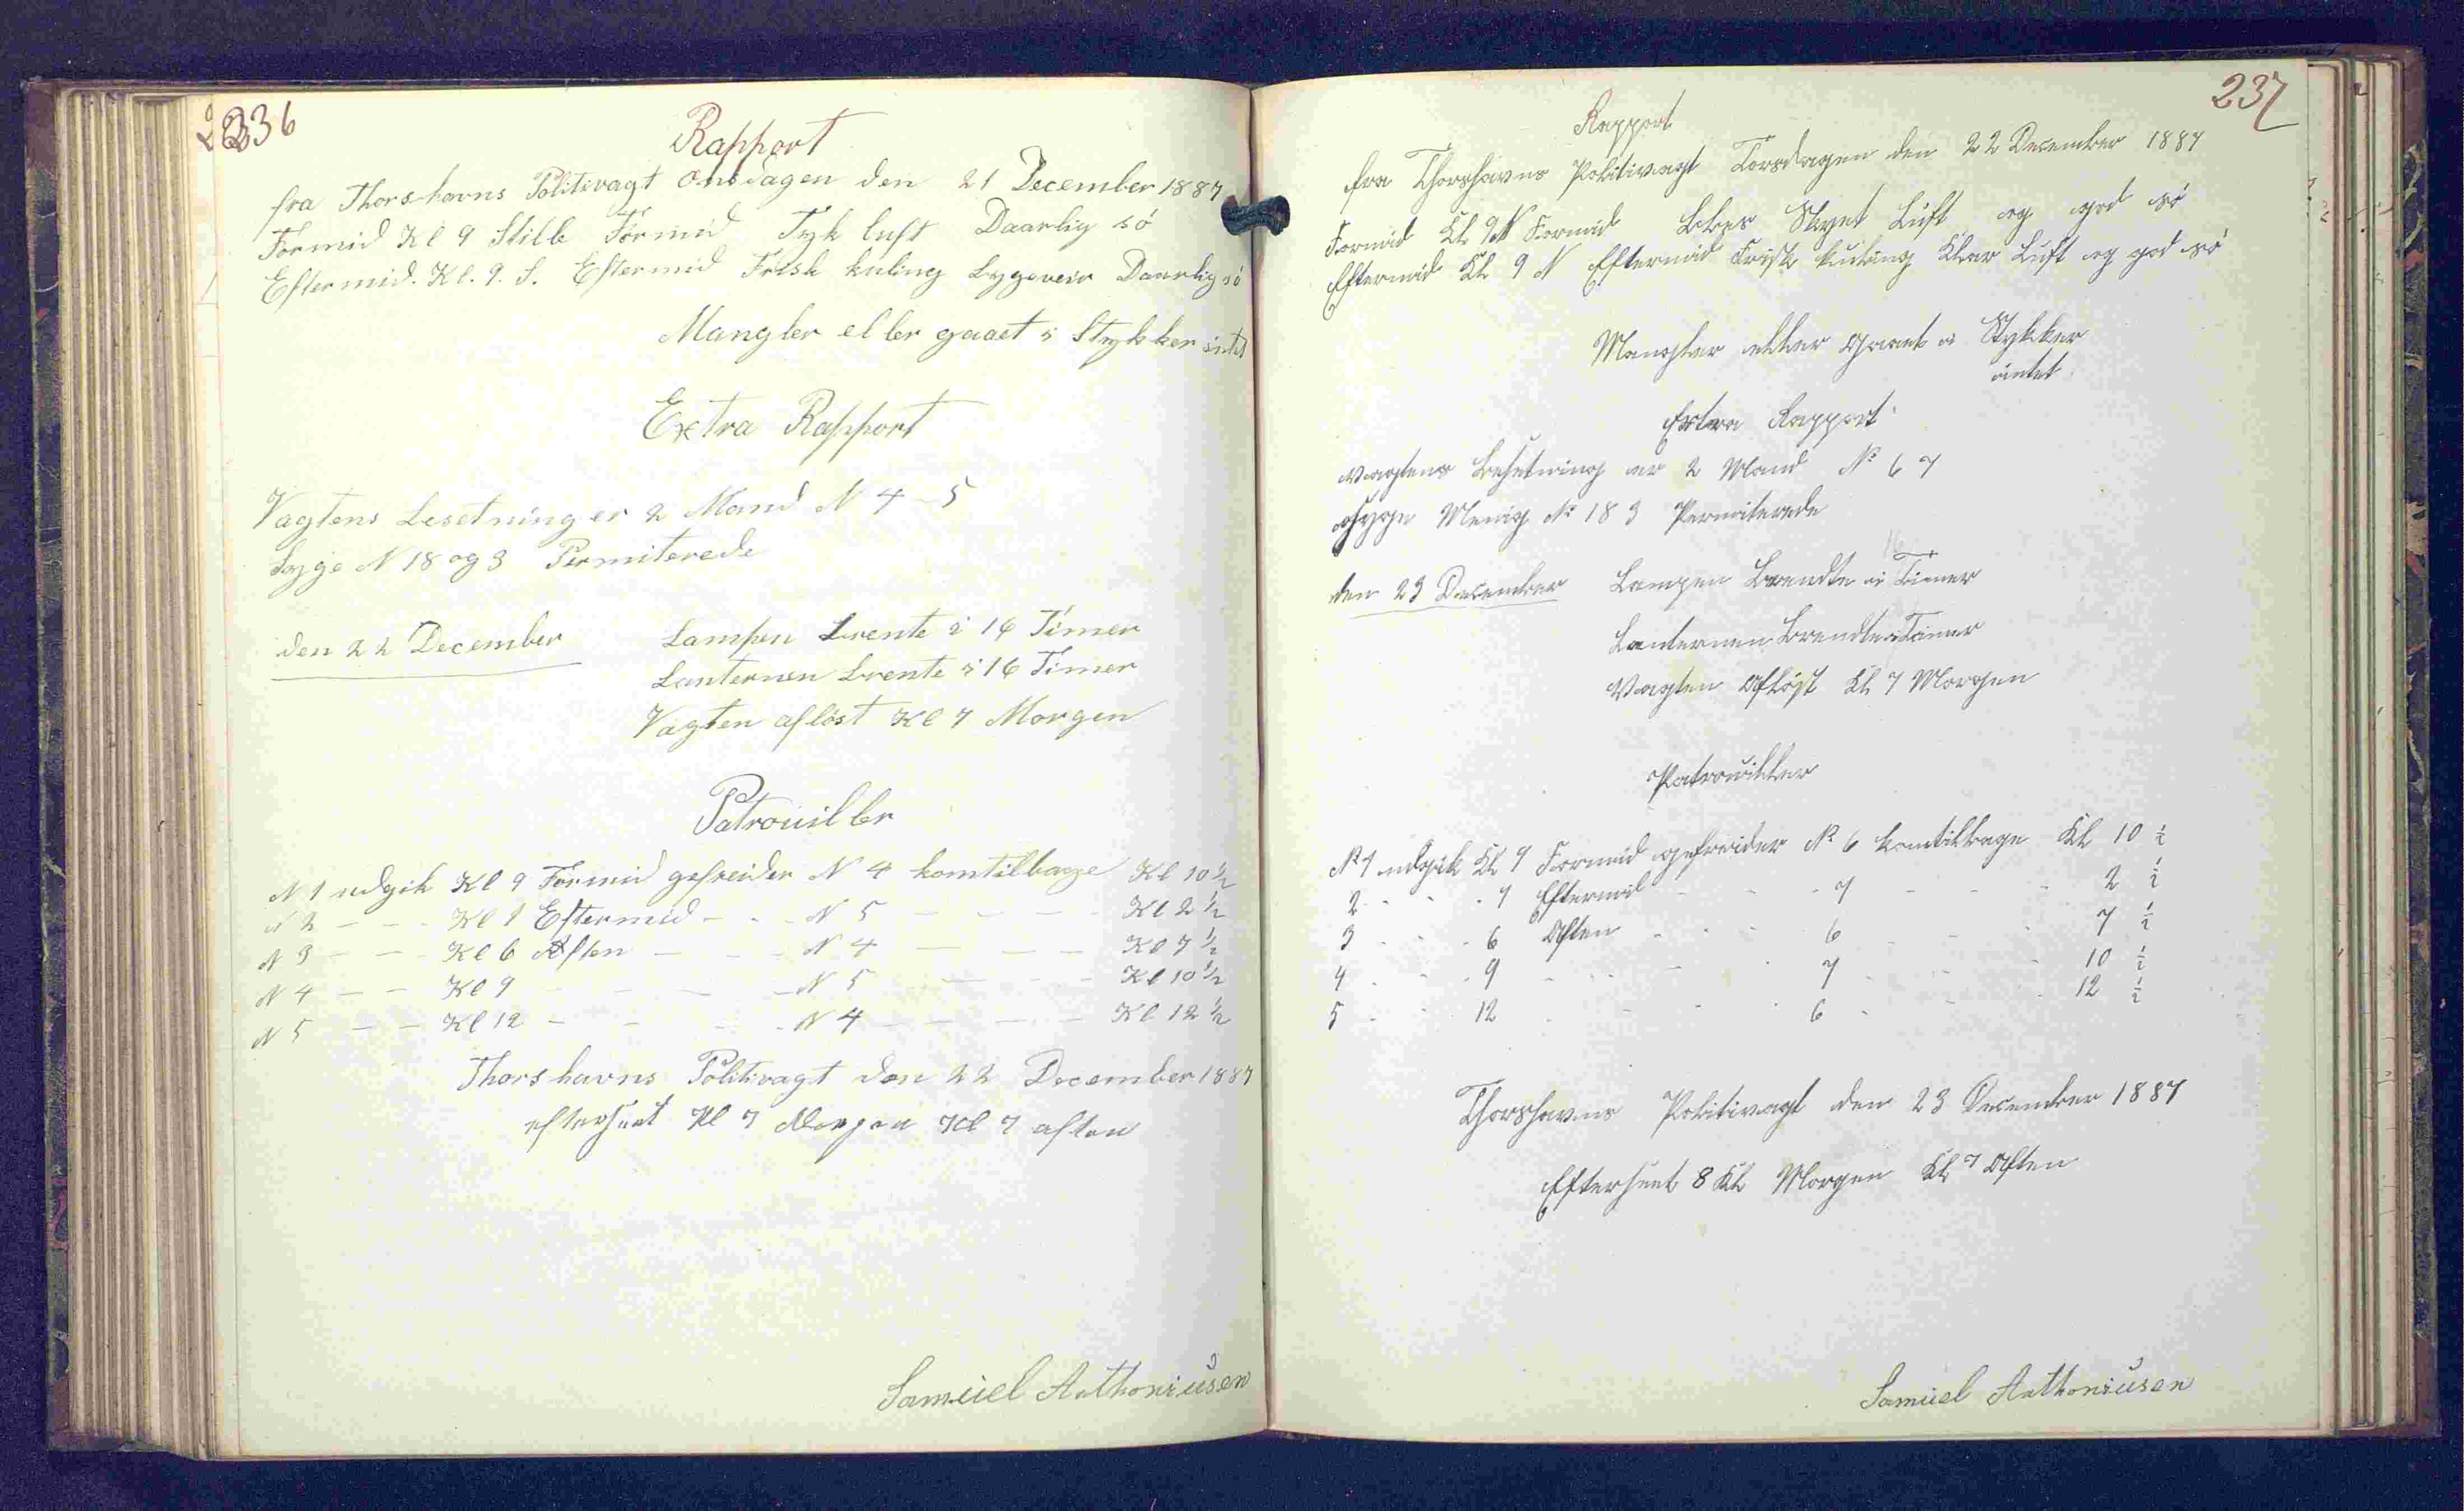 236
Rapport
fra Thorshavns Politivagt Onsdagen den 21 December 1887
Formid Kl 9 Stille Formid Tyk luft Daarlig sö
Eftermid. Kl. 9. S. Eftermid Frisk kuling Lygeveir Daarlig sö
Mangler eller gaaet i Stykker intet
Extra Rapport
Vagtens besetning er 2 Mand N 4 - 5
Syge N 18 og 3 Permiterede
den 22 December Lampen brente i 16 Timer
Lanternen brente i 16 Timer
Vagten aflöst Kl 7 Morgen
Patrouiller
N 1 udgik Kl 9 Formid gefreider N 4 komtilbage Kl 10 1/2
N 2 - - - Kl 1 Eftermid - - - N 5 - - - - Kl 2 1/2
N 3 - - - Kl 6 Aften - - - N 4 - - - Kl 7 1/2
N 4 - - Kl 9 - - - - N 5 - - - - Kl 10 1/2
N 5 - - Kl 12 - - - - N 4 - - - - Kl 12 1/2
Thorshavns Politivagt den 22 December 1887
efterseet Kl 7 Morgen Kl 7 aften
Samuel Anthoniusen
237
Rapport
fra Thorshavns Politivagt Torsdagen den 22 December 1887
Formid Kl 9 N Formid Skyet Luft og god sö
Eftermid Kl 9 N Eftermid Frisk kuling Klar Luft og god sö
Mangler eller Gaaet i Stykker
intet
Extra Rapport
Vagtens Besetning er 2 Mand No 6 7
Syge Menig No 18 3 Permiterede
den 23 December Lampen Brendte i Timer
Lanternen Brendte i Timer
Vagten Aflöst Kl 7 Morgen
Patrouiller
No 1 udgik Kl 9 Formid gefreider No 6 komtilbage Kl 10 1/2
2 - - - 1 Eftermid - - - 7 - - - 2 1/2
3 - - - 6 Aften - - - 6 - - - 7 1/2
4 - - - 9 - - - 7 - - - 10 1/2
5 - - - 12 - - - 6 - - - 12 1/2
Thorshavns Politivagt den 23 December 1887
Efterseet 8 Kl Morgen Kl 7 Aften
Samuel Anthoniusen